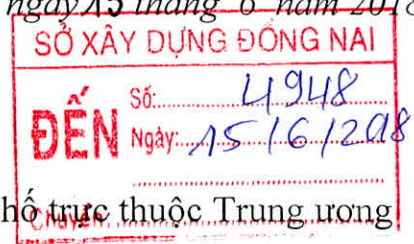 ngày 15 tháng 6 năm 2018
SỞ XÂY DỰNG ĐỒNG NAI
ĐẾN
Số: 4948
Ngày: 15/6/2018
Chuyển:
hố trực thuộc Trung ương